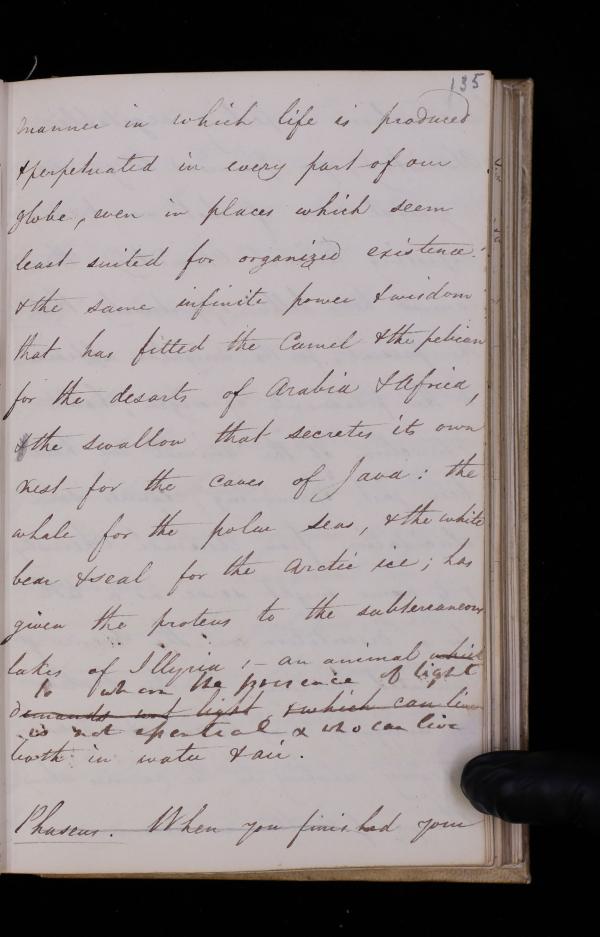 135
manner in which life is produced
& perpetuated in every part of our
globe, even in places which seem
least suited for organized existence.
& the same infinite power & wisdom
that has fitted the Camel & the pelican
for the desarts of Arabia & Africa,
& the swallow that secretes its own
nest for the caves of Java: the
whale for the polar seas, & the white
bear & seal for the arctic ice; has
given the proteus to the subterraneous
lakes of Illyria; – an animal which
to whom the presence of light
demands not light, & which can live
is not essential & who can live
both in water & air.
Phuseus. When you finished your